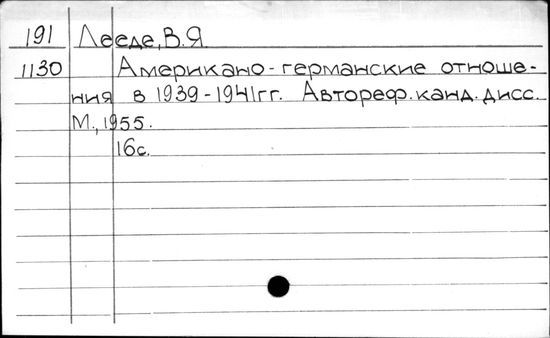 191 Лееде, В.Я
1130 Американо-германские отноше-
ния в 1939-1941гг. Автореф. канд. дисс.
М., 1955.
16с.